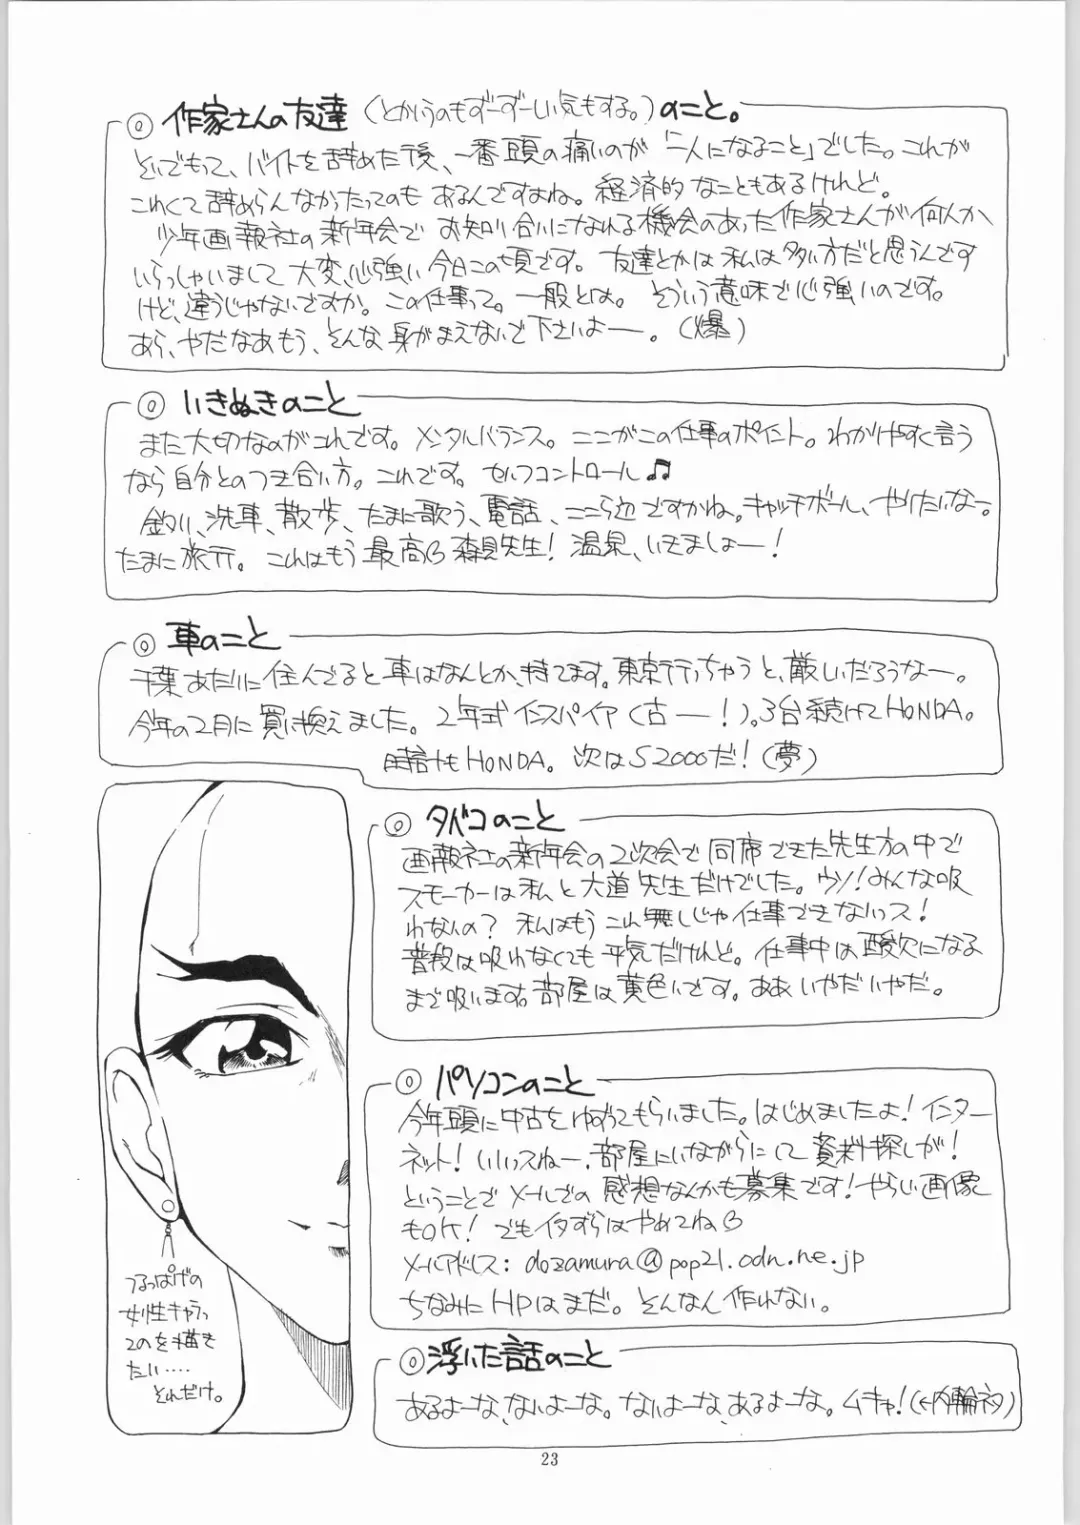 ◎作家さんの友達（とかいうのもずーずーしい気もする。）のこと。
そいでもって、バイトを辞めた後、一番頭の痛いのが「一人になること」でした。これが
こわくて辞めらんなかったってのもあるんですよね。経済的なこともあるけれど。
少年画報社の新年会でお知り合いになれる機会のあった作家さんが何人か
いらっしゃいまして大変、心強い今日この頃です。友達とかは私は多い方だと思うんです
けど、違うじゃないですか。この仕事って。一般とは。そういう意味で心強いのです。
あら、やだなあもう、そんな身がまえないで下さいよー。（爆）
◎いきぬきのこと
また大切なのがこれです。メンタルバランス。ここがこの仕事のポイント。わかりやすく言う
なら自分とのつき合い方。これです。セルフコントロール♫
釣り、洗車、散歩、たまに歌う、電話、ここら辺ですかね。キャッチボール、やりたいなー。
たまに旅行。これはもう最高 森見先生！温泉、いきましょー！
◎車のこと
千葉あたりに住んでると車はなんとか、持てます。東京行っちゃうと、厳しいだろうなー。
今年の2月に買い換えました。2年式インスパイヤ（古ー！）。3台続けてHONDA。
時計もHONDA。次はS2000だ！（夢）
◎タバコのこと
画報社の新年会の2次会で同席できた先生方の中で
スモーカーは私と大道先生だけでした。ウソ！みんな吸
わないの？私はもうこれ無しじゃ仕事できないっス！
普段は吸わなくても平気だけれど。仕事中は酸欠になる
まで吸います。部屋は黄色いです。ああいやだいやだ。
◎パソコンのこと
今年頭に中古をゆずってもらいました。はじめましたよ！インター
ネット！いいっスねー、部屋にいながらにして資料探しが！
ということでメールでの感想なんかも募集です！やらしい画像
もOK！でもイタずらはやめてね
メールアドレス：dozamura@pop21.odn.ne.jp
ちなみにHPはまだ。そんなん作れない。
◎浮いた話のこと
あるよーな、ないよーな。ないよーな、あるよーな。ムキャ！（←内輪ネタ）
つるっぱげの
女性キャラっ
てのを描き
たい‥‥
それだけ。
23